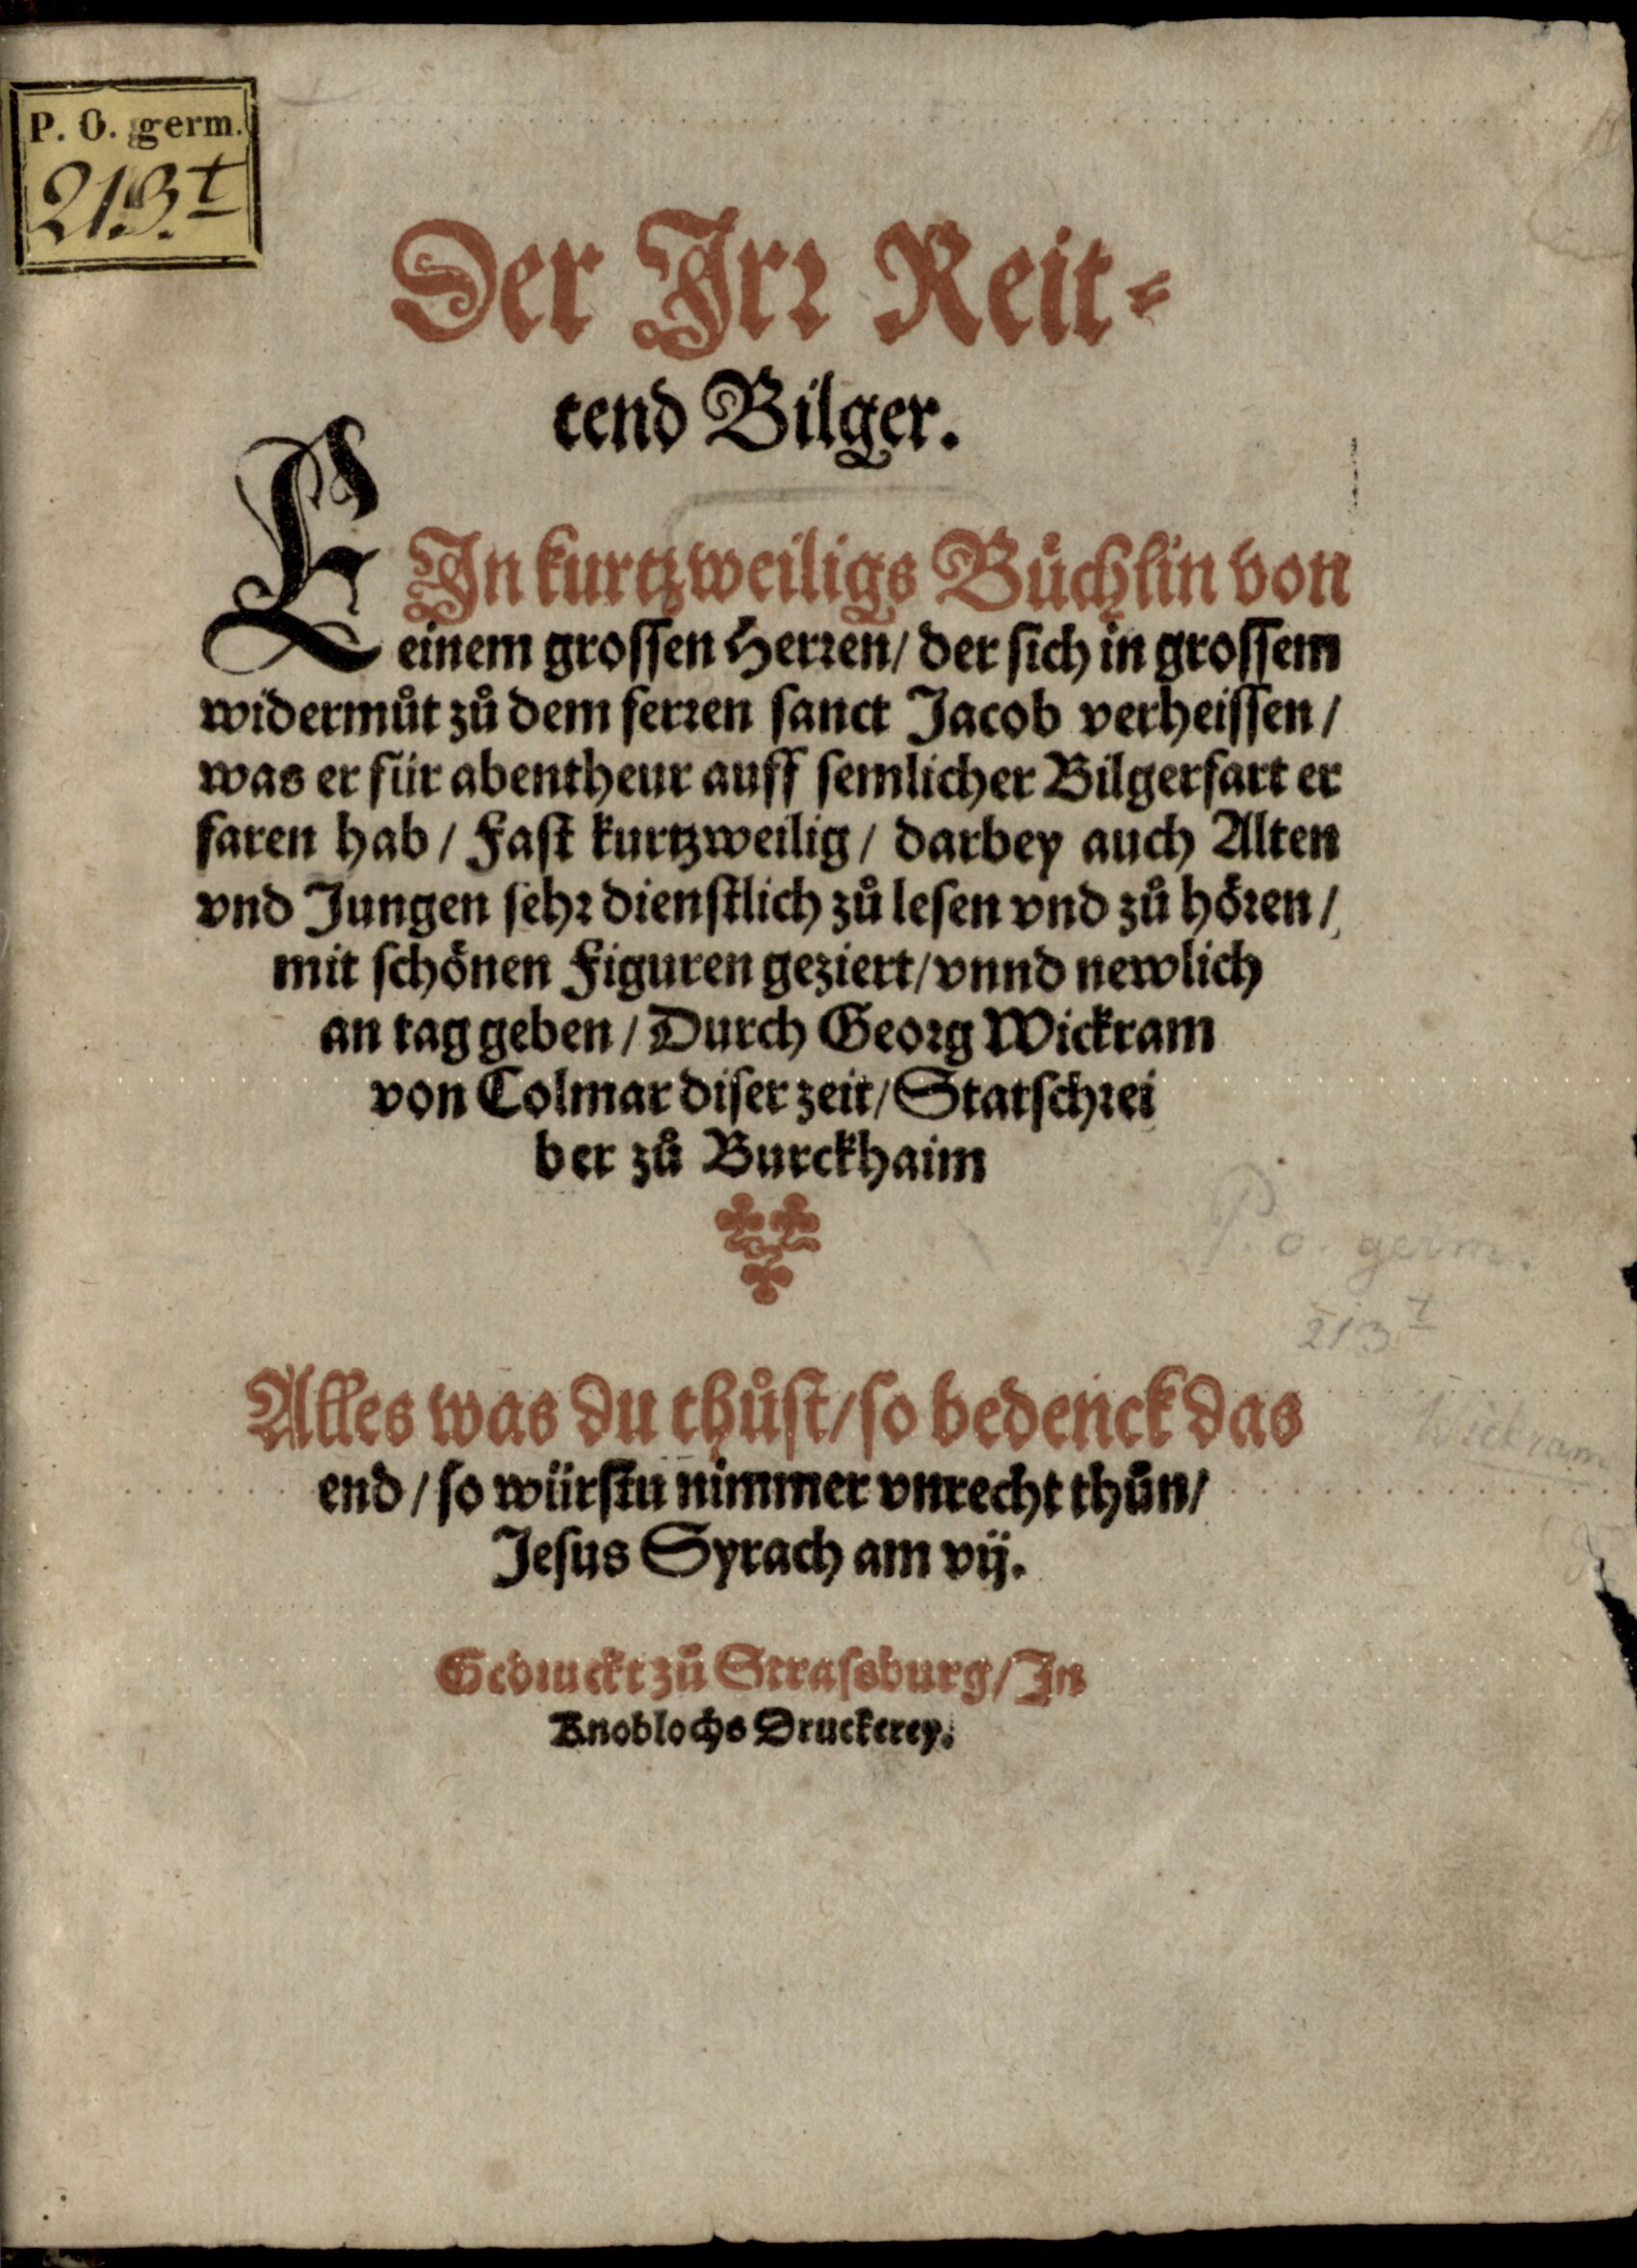 P. O. germ.
213.t
Der Jrꝛ Reit-
tend Bilger.
EJn kurtzweiligs Bůchlin von
einem groſſen Herꝛen/ der ſich in groſſem
widermůt zů dem ferꝛen ſanct Jacob verheiſſen/
was er für abentheur auff ſemlicher Bilgerfart er
faren hab/ Faſt kurtzweilig/ darbey auch Alten
vnd Jungen ſehꝛ dienſtlich zů leſen vnd zů höꝛen/
mit ſchönen Figuren geziert/ vnnd newlich
an tag geben/ Durch Geoꝛg Wickram
von Colmar diſer zeit/ Statſchꝛei
ber zů Burckhaim
P. o. germ.
213 t
Alles was du thůſt/ ſo bedenck das
Wickram
end/ ſo würſtu nimmer vnrecht thůn/
Jeſus Syrach am vij.
Gedꝛuckt zů Straſsburg/ Jn
Knoblochs Druckerey.